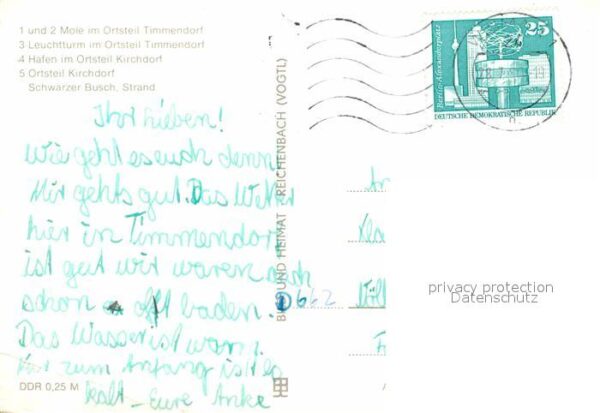 1 und 2 Mole im Ortsteil Timmendorf
3 Leuchtturm im Ortsteil Timmendorf
4 Hafen im Ortsteil Kirchdorf
5 Ortsteil Kirchdorf
Schwarzer Busch, Strand
Ihr Lieben!
Wie geht es euch denn
Mir gehts gut. Das Wetter
hier in Timmendorf
ist gut wir waren auch
schon oft baden.
Das Wasser ist warm.
Nur zum Anfang ist es
kalt - Eure Anke
DDR 0,25 M
BILD UND HEIMAT REICHENBACH (VOGTL)
25
Berlin, Alexanderplatz
DEUTSCHE DEMOKRATISCHE REPUBLIK
privacy protection
Datenschutz